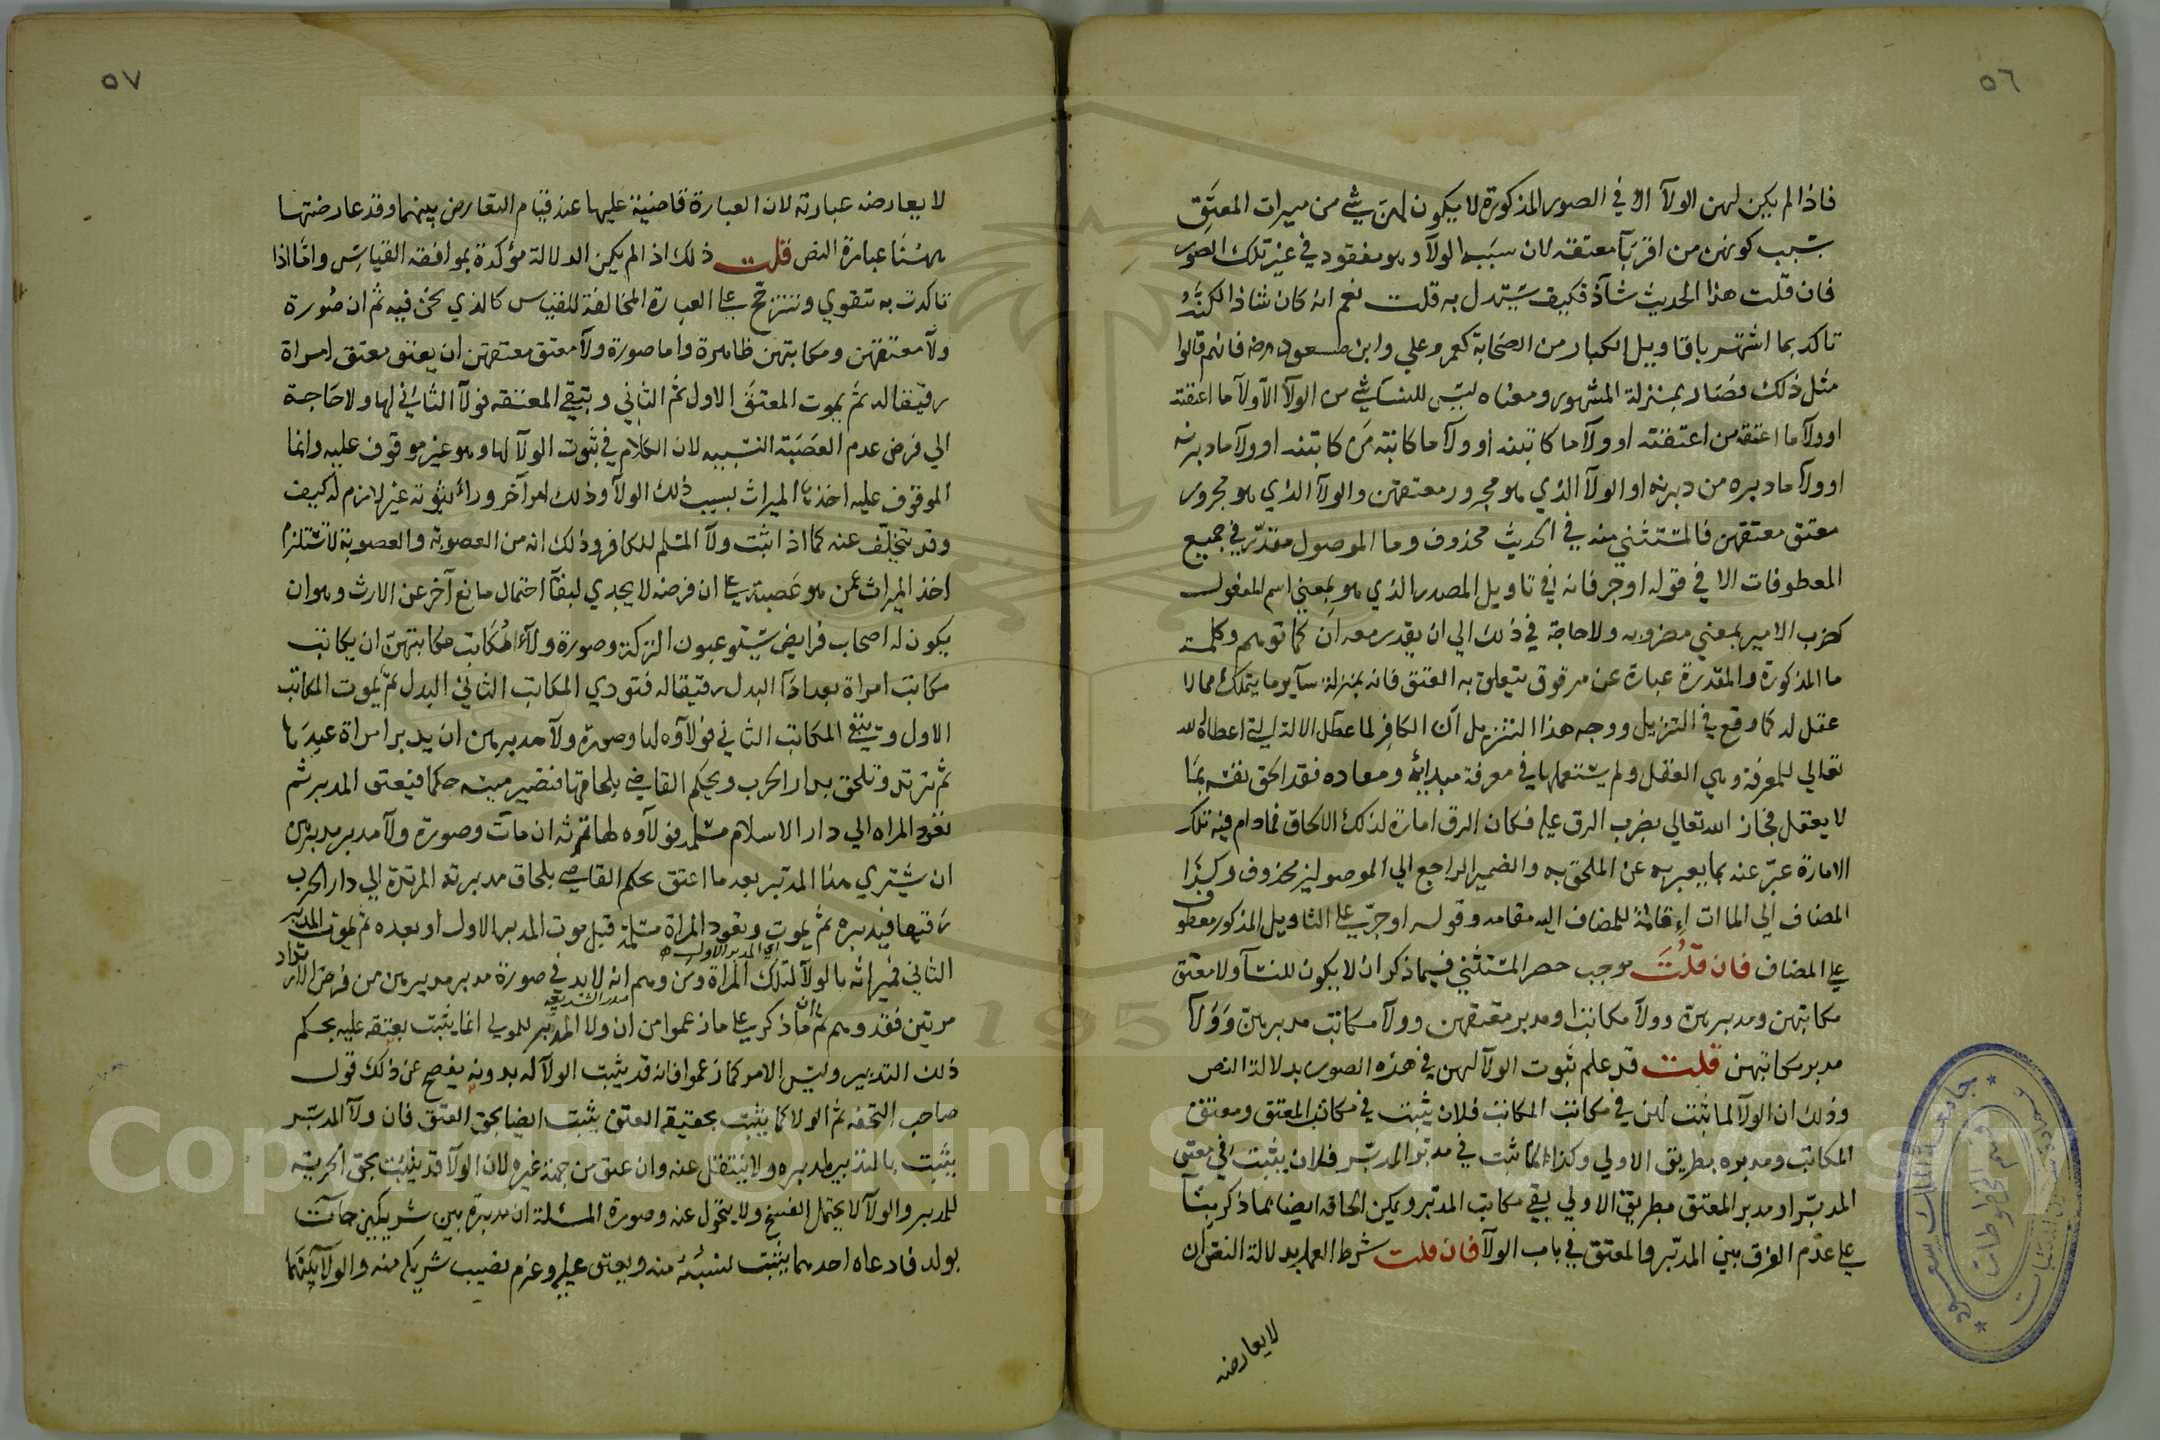 ٥٦
فاذا لم يكن لهن الولآ الا في الصور المذكورة لا يكون لهن شي من ميراث المعتق
بسبب كونهن من اقربآ معتقه لان سبب الولآ وهو مفقود في غير تلك الصور
فان قلت هذا الحديث شآذ فكيف يستدل به قلت نعم انه كان شاذا لكنه
تاكد بما اشتهر باقاويل الكبار من الصحابة كعمر وعلي وابن مسعود رضه فانهم قالوا
مثل ذلك فصار بمنزلة المشهور ومعناه ليس للنسآ شي من الولآ الا ولآ ما اعتقنه
او ولآ ما اعتقه من اعتقنه او ولآ ما كاتبنه او ولآ ما كاتبه من كاتبنه او ولآ ما دبرنه
او ولآ ما دبره من دبرنه او الولآ الذي هو مجرور معتقهن والولآ الذي هو مجرور
معتق معتقهن فالمستثني منه في الحديث محذوف وما الموصول مقدر في جميع
المعطوفات الا في قوله او جر فانه في تاويل المصدر الذي هو بمعني اسم المفعول
كضرب الامير بمعني مضروبه ولا حاجة في ذلك الي ان يقدر معه ان كما توهم وكلمة
ما المذكورة والمقدرة عبارة عن مرقوق يتعلق به العتق فانه بمنزلة سآير ما يتملك مما لا
عقل له كما وقع في التنزيل ووجه هذا التنزيل ان الكافر لما عطل الالة التي اعطاه الله
تعالي للمعرفة وهي العقل ولم يستعملها في معرفة مبدائه ومعاده فقد الحق نفسه بما
لا يعقل فجازاه الله تعالي بضرب الرق عليه فكان الرق امارة لذلك اللحاق فما دام فيه تلك
الامارة عبر عنه بما يعبر به عن الملحق به والضمير الراجع الي الموصولين محذوف وكذا
المضاف الي الماات اقامة للمضاف اليه مقامه وقوله او جر علي التاويل المذكور معطوف
علي المضاف فان قلت موجب حصر المستثني فيما ذكر ان لا يكون للنسآ ولا معتق
مكاتبهن ومدبرهن وولآ مكاتب ومدبر معتقهن وولآ مكاتب مدبرهن وولآ
مدبر مكاتبهن قلت قد علم ثبوت الولآ لهن في هذه الصور بدلالة النص
وذلك ان الولآ لما ثبت لهن في مكاتب المكاتب فلان يثبت في مكاتب المعتق ومعتق
المكاتب ومدبره بطريق الاولي وكذا لما ثبت في مدبر المدبر فلان يثبت في معتق
المدبر او مدبر المعتق بطريق الاولي بقي مكاتب المدبر ويمكن الحاقه ايضا بما ذكر بنآ
علي عدم الفرق بين المدبر والمعتق في باب الولآ فان قلت شرط العمل بدلالة النص ان
لا يعارضه
٥٧
لا يعارضه عبارته لان العبارة قاضية عليها عند قيام التعارض بينهما وقد عارضتها
ههنا عبارة النص قلت ذلك اذا لم يكن الدلالة مؤكدة بموافقه القياس واما اذا
تاكدت به تتقوي وتترجح علي العبارة المخالفة للقياس كالذي نحن فيه ثم ان صورة
ولآ معتقهن ومكاتبهن ظاهرة واما صورة ولآ معتق معتقهن ان يعتق معتق امراة
رقيقا له ثم يموت المعتق الاول ثم الثاني وتبقي المعتقه فولآ الثاني لها ولا حاجة
الي فرض عدم العصبة النسبيه لان الكلام في ثبوت الولآ لها وهو غير موقوف عليه وانما
الموقوف عليه اخذها الميراث بسبب ذلك الولآ وذلك امر آخر ورآء ثبوته غير لازم له كيف
وقد يتخلف عنه كما اذا ثبت ولآ المسلم للكافر وذلك انه من العصوبة والعصوبة لا تستلزم
اخذ الميراث عمن هو عصبة علي ان فرضه لا يجدي لبقآ احتمال مانع آخر عن الارث وهو ان
يكون له اصحاب فرايض يستوعبون التركة وصورة ولآء المكاتب مكاتبهن ان يكاتب
مكاتب امراة بعد ادآ البدل رقيقا له فتودي المكاتب الثاني البدل ثم يموت المكاتب
الاول ويبقي المكاتب الثاني فولآوه لها وصورة ولآ مدبرهن ان يدبر امراة عبدها
ثم ترتد وتلحق بدار الحرب ويحكم القاضي بلحاقها فتصير ميته حكما فيعتق المدبر ثم
تعود المراه الي دار الاسلام مسلمة فولآوه لها ترثه ان مات وصورة ولآ مدبر مدبرهن
ان يشتري هذا المدبر بعد ما اعتق بحكم القاضي بلحاق مدبرته المرتدة الي دار الحرب
رقيقا فيدبره ثم يموت وتعود المراة مسلمة قبل موت المدبر الاول او بعده ثم يموت المدبر
اي المدبر الاول
الثاني فميراثه بالولآ لتلك المراة ومن وهم انه لا بد في صورة مدبر مدبرهن من فرض الارتداد
صدر الشريعه
مرتين فقد وهم ثم ان ما ذكر علي ما زعموا من ان ولا المدبر للمولي انما يثبت بعتقه عليه بحكم
ذلك التدبير وليس الامر كما زعموا فانه قد يثبت الولآ له بدونه يفصح عن ذلك قول
صاحب التحفه ثم الولا كما يثبت بحقيقه العتق يثبت ايضا بحق العتق فان ولآ المدبر
يثبت بالتدبير لمدبره ولا ينتقل عنه وان عتق من جهة غيره لان الولآ قد يثبت بحق الحرية
للمدبر والولآ لا يحتمل الفسخ ولا يتحول عنه وصورة المسئلة ان مدبرة بين شريكين جآت
بولد فادعاه احدهما يثبت نسبه منه ويعتق عليه وغرم نصيب شريكه منه والولآ بينهما